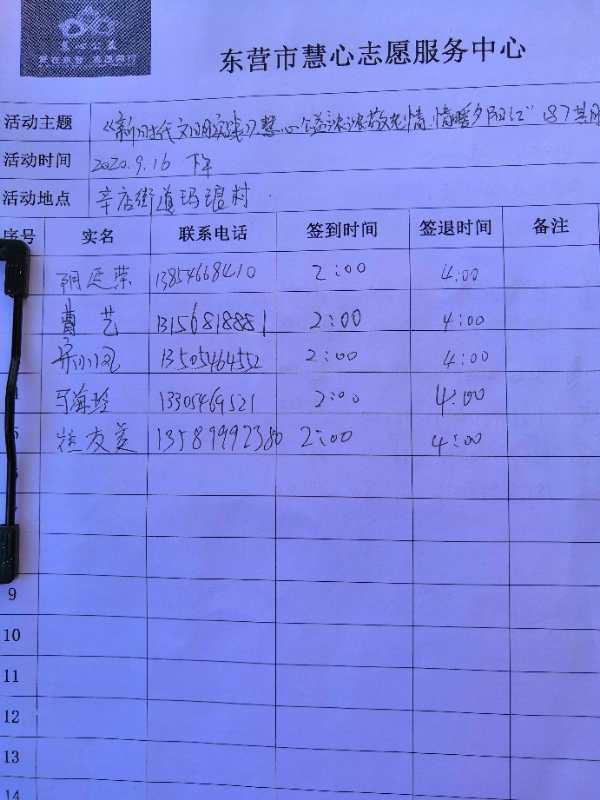 慧心公益
东营市慧心志愿服务中心
活动主题 《新时代文明实践》慧心公益浓浓敬老情 情暖夕阳红"187期
活动时间 2020.9.16 下午
活动地点 辛店街道玛琅村
序号 实名 联系电话 签到时间 签退时间 备注
13854668410 2:00 4:00
曹艺 13156818881 2:00 4:00
13505464552 2:00 4:00
4 马海玲 13305469521 2:00 4:00
5 崔友美 13589992380 2:00 4:00
9
10
11
12
13
14